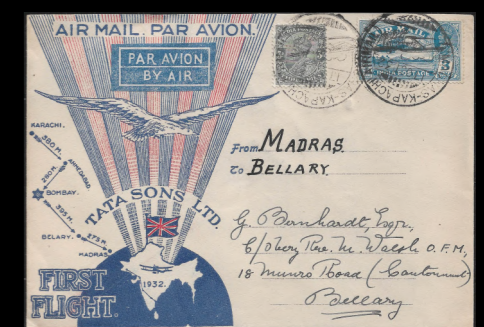 AIR MAIL. PAR AVION.
PAR AVION
BY AIR
AIR MAIL
POSTAGE
KARACHI.
380 M.
AHMEDABAD.
280 M.
BOMBAY.
395 M.
BELARY.
275 M.
MADRAS.
TATA SONS LTD.
1932.
FIRST
FLIGHT.
From MADRAS
To BELLARY
G. Bernhardt, Esqr.,
C/o Very Rev. M. Walsh O.F.M.,
18 Munro Road (Cantonment)
Bellary